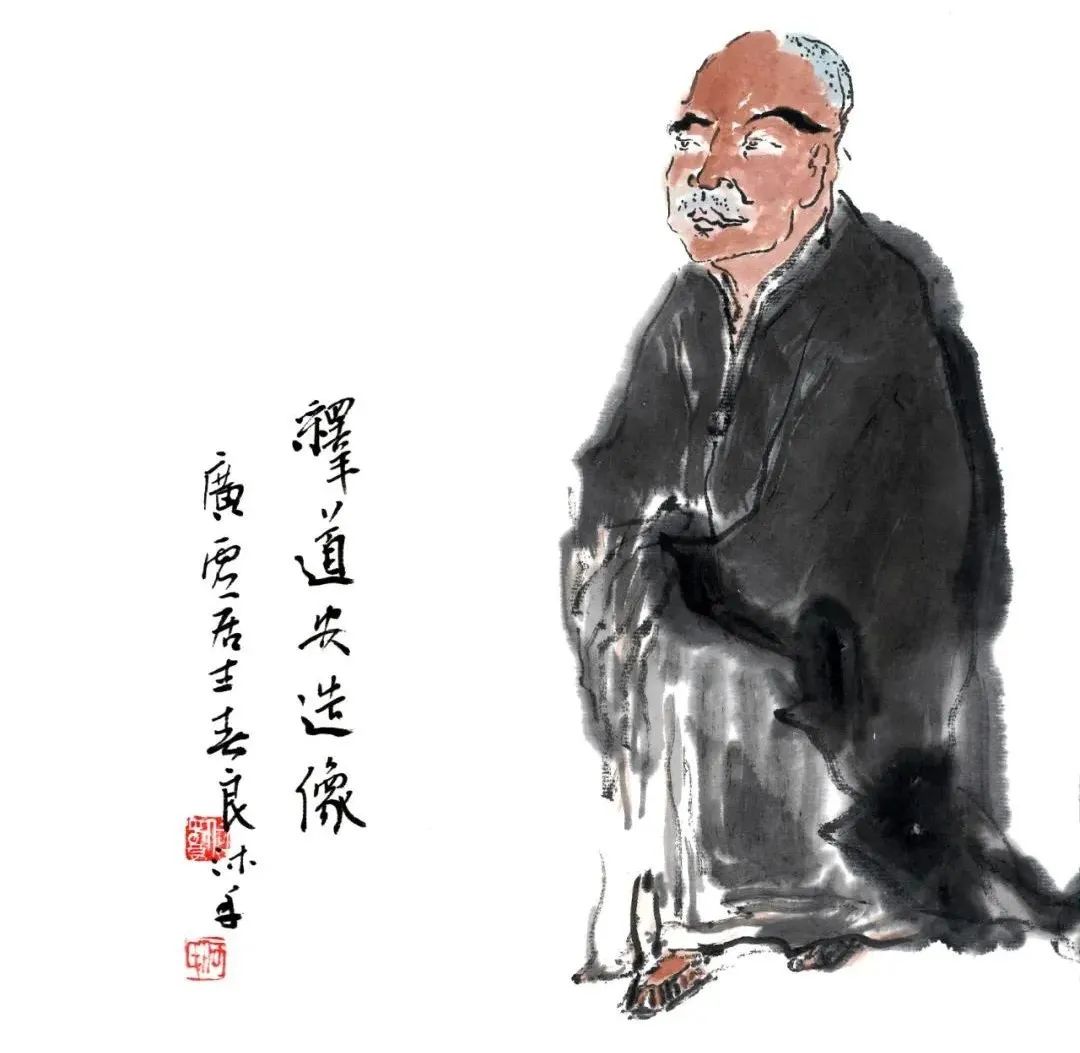 釋道安造像
廣雲居士春良沐手